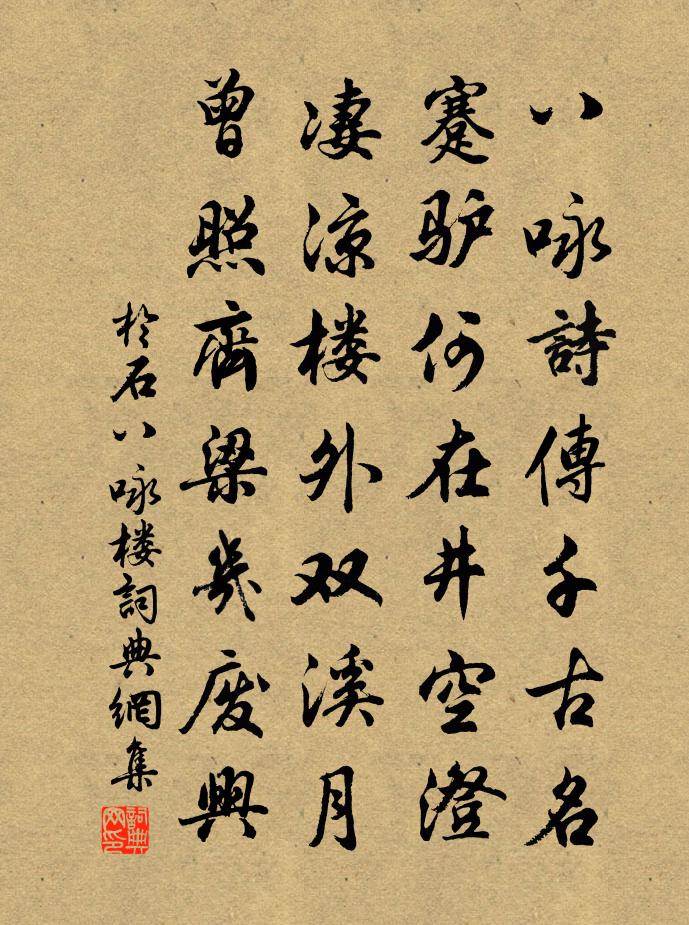 八咏詩傳千古名
蹇驴何在井空澄
凄涼楼外双溪月
曾照齊梁幾廢興
於石八咏楼詞典網集
詞典网印